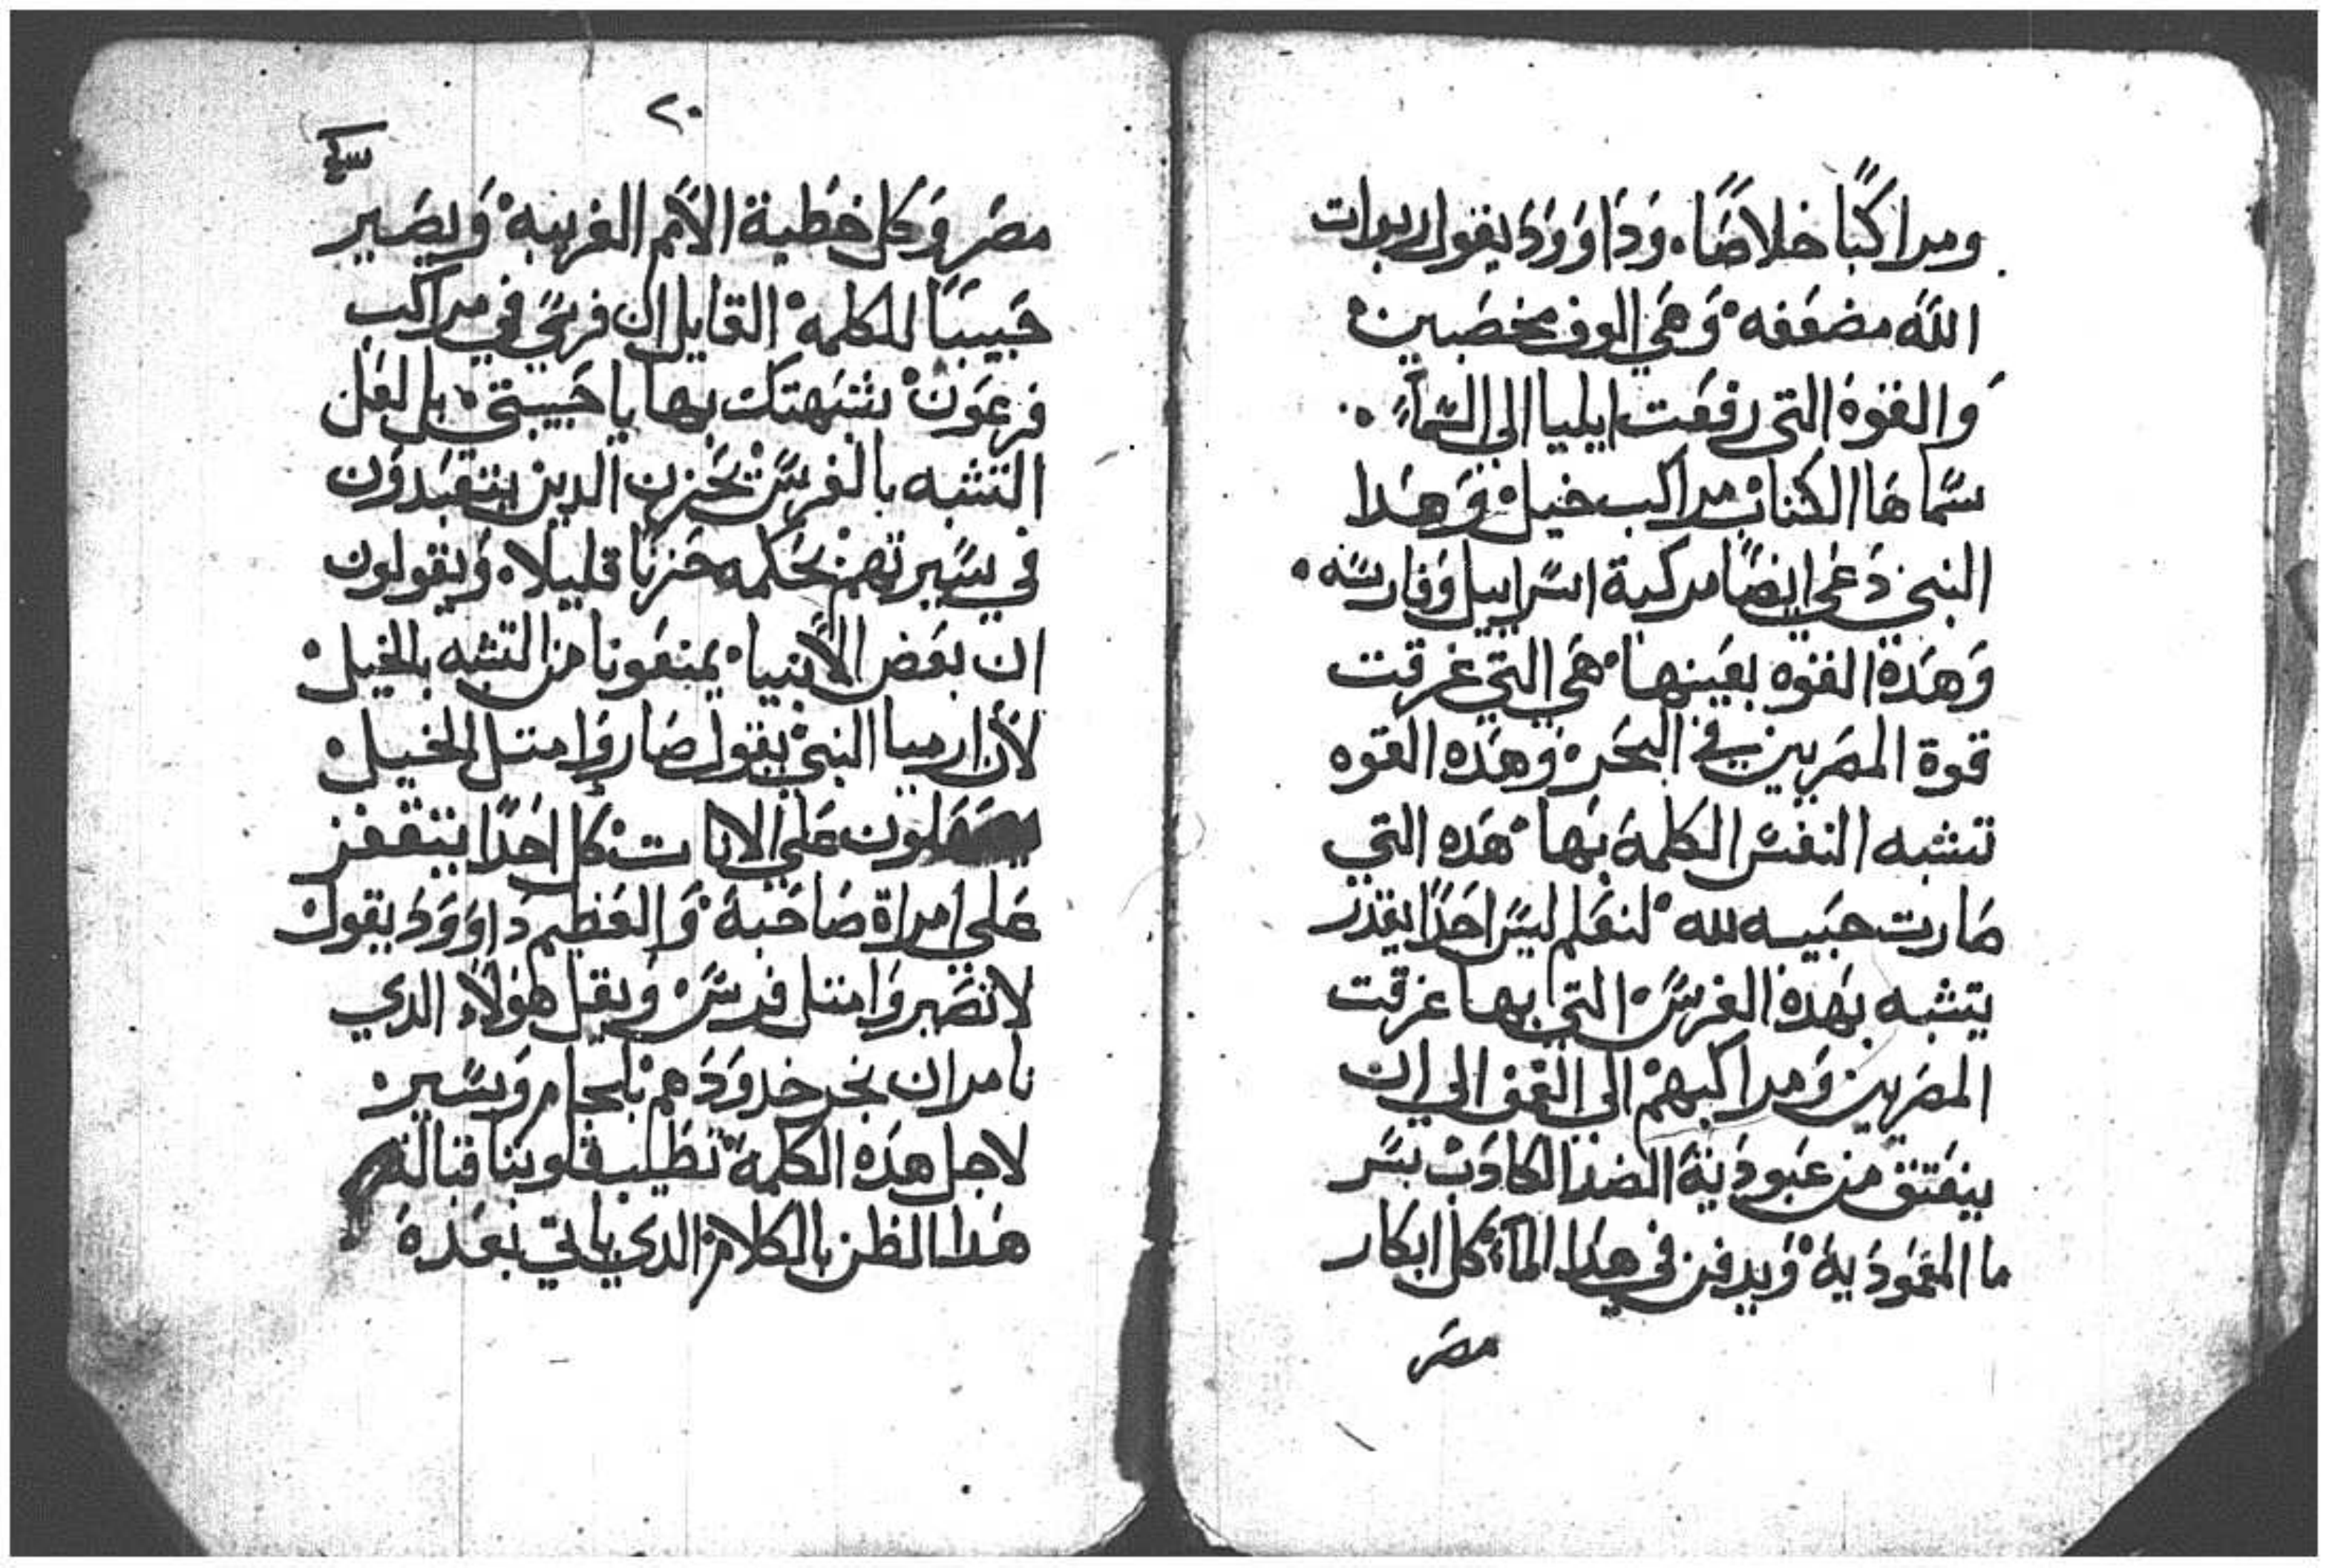 ومراكبًا خلاصًا. وَدَاوَوَدَ يقول ربوات
اللّه مضعَفه وَهَي الوف مخصَبين
وَالقوة التي رفعَت ايليا الي السَّماءً
سَّماهَا الكتاب مراكب خيل وَهدا
النبي دَعَي ايضًا مركبة اسَّراييل وَفارسَه
وَهَدة القوه بعَينها هَي التي غرقت
قوة المصَريين في البحَر وَهَده القوه
تتشبه النفس الكلمة بَها هَده التي
صَارت حبَيبه لله لنعَلم ليسَ احَدًا يقدر
يتشبه بهَدة الفرسَ التي بها غرقت
المصَريين وَمراكبهمْ الي العَمق الي ان
ينعَتق من عَبودَية الضد الكادَب بسَر
ما المعَموَدَية وَيدفن في هدا الماء كل ابكار
مصَر
٢٠
مصَر وَكل خطية الاَمم الغريبه وَيصَير
حَبيبَا للكلمه القايل ان فرسَي في مراكب
فرعَون شَبهتك بها يا حَبيبتي بل لعَل
التشبه بالفرسَ يحَزن الدين يتعَبدوَن
في سَيرتهم بحَكمه حَزنًا قليلا وَيقولون
ان بعَض الاَنبيا يمنعَونا من التشبه بالخيل
لأن ارميا النبي يقول صَاروَا متل الخيل
علي الاناث كل احَدًا يتقفز
عَلي امراة صَاحَبة وَالعَظيم دَاوَوَدَ يقول
لاتصَيروَا متل فرسَ وَبغل هَوَلاَء الدي
نامر ان نجر خدوَدَهم بلجام وَسَير
لاجل هَده الكلمة نطَيب قلوبنا قبالة
هَدا الظن بالكلام الدي ياتي بعَدَة